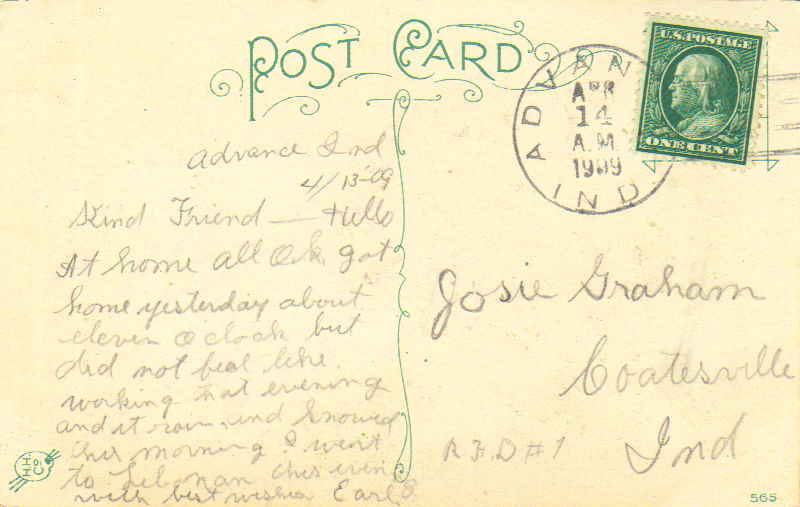 POST CARD
U.S. POSTAGE
ONE CENT
ADVAN
APR
14
A.M.
1909
IND
Advance Ind
4/13-09
Kind Friend — Hello
At home all O.k. got
home yesterday about
eleven o clock but
did not feel like
working that evening
and it rained and snowed
this morning I went
to Lebonan this even
with best wishes Earl
Josie Graham
Coatesville
Ind
R.F.D #1
H H
Co
565